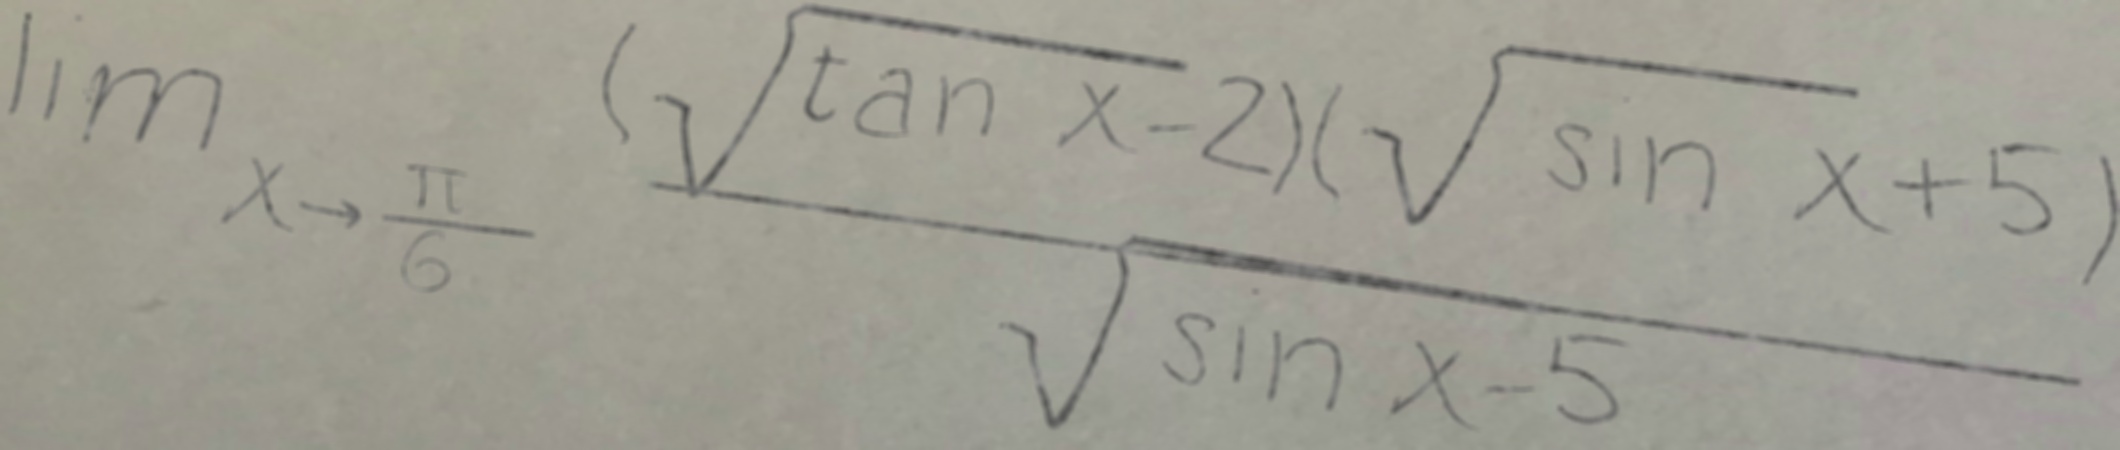 \lim_{x \to \frac{\pi}{6}} \frac{(\sqrt{\tan x}-2)(\sqrt{\sin x}+5)}{\sqrt{\sin x-5}}